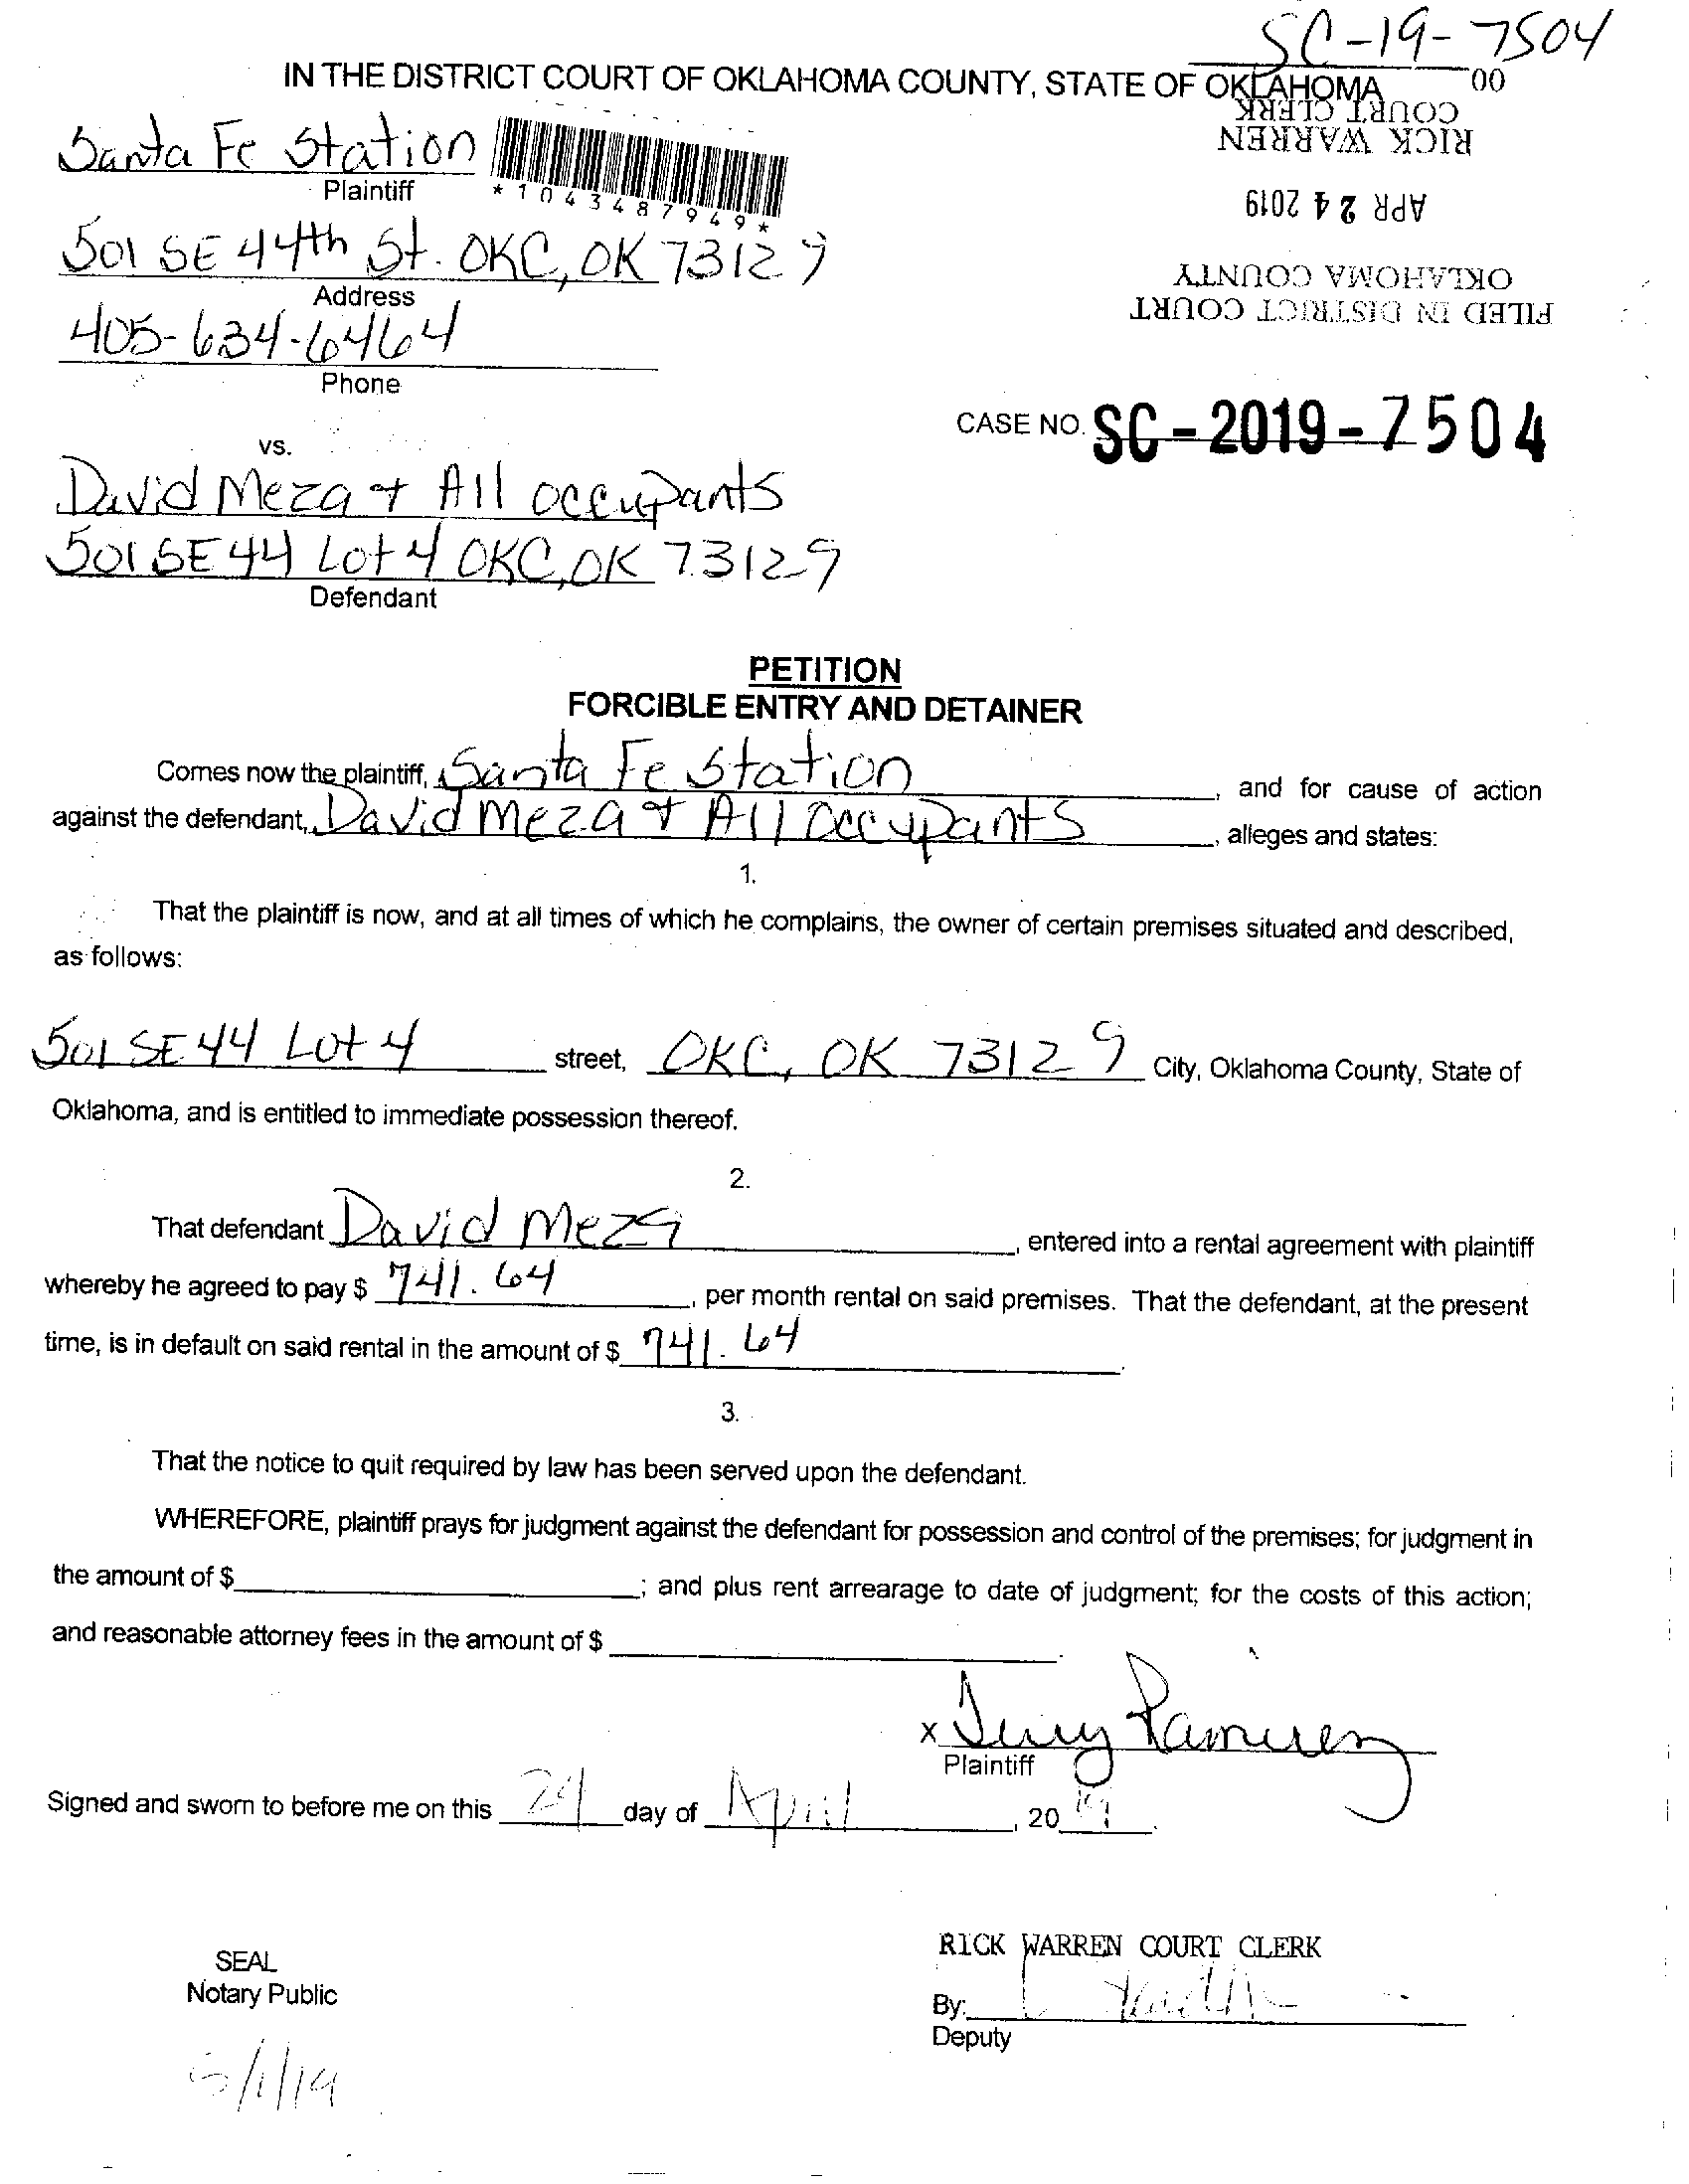 SC-19-7504
IN THE DISTRICT COURT OF OKLAHOMA COUNTY, STATE OF OKLAHOMA
00
FILED IN DISTRICT COURT
OKLAHOMA COUNTY
APR 24 2019
RICK WARREN
COURT CLERK
Santa Fe Station
Plaintiff
*1043487949*
501 SE 44th St. OKC, OK 73129
Address
405-634-6464
Phone
CASE NO. SC-2019-7504
vs.
David Meza + All occupants
501 SE 44 Lot 4 OKC, OK 73129
Defendant
PETITION
FORCIBLE ENTRY AND DETAINER
Comes now the plaintiff, Santa Fe Station, and for cause of action
against the defendant, David Meza + All Occupants, alleges and states:
1.
That the plaintiff is now, and at all times of which he complains, the owner of certain premises situated and described,
as follows:
501 SE 44 Lot 4 street, OKC, OK 73129 City, Oklahoma County, State of
Oklahoma, and is entitled to immediate possession thereof.
2.
That defendant David Meza, entered into a rental agreement with plaintiff
whereby he agreed to pay $ 741.64, per month rental on said premises. That the defendant, at the present
time, is in default on said rental in the amount of $ 741.64.
3.
That the notice to quit required by law has been served upon the defendant.
WHEREFORE, plaintiff prays for judgment against the defendant for possession and control of the premises; for judgment in
the amount of $; and plus rent arrearage to date of judgment; for the costs of this action;
and reasonable attorney fees in the amount of $.
x Ramirez
Plaintiff
Signed and sworn to before me on this 24 day of April, 2019.
RICK WARREN COURT CLERK
SEAL
Notary Public
By:
Deputy
5/1/19